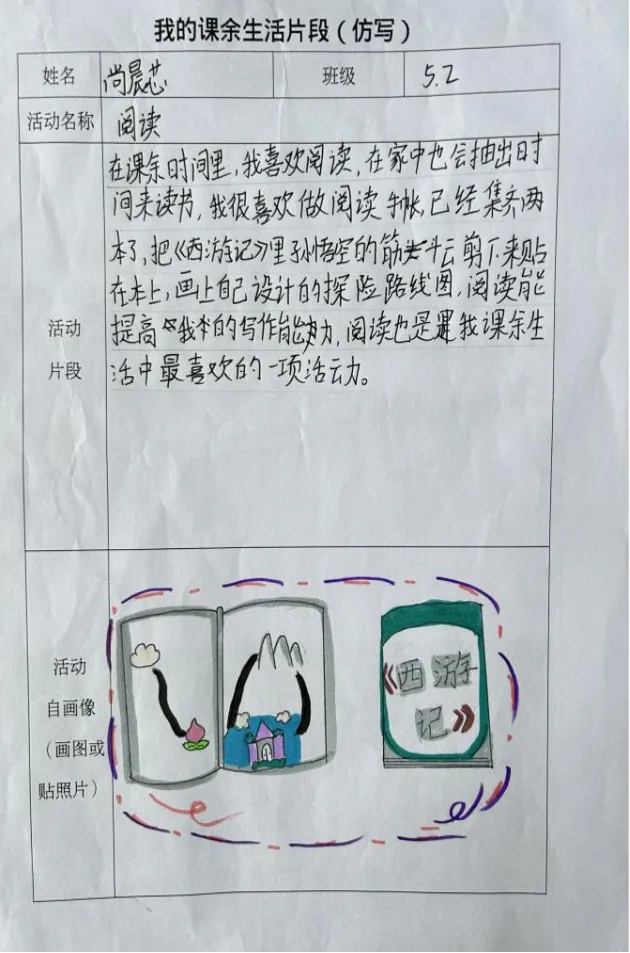 我的课余生活片段（仿写）
姓名 尚晨芯 班级 5.2
活动名称 阅读
活动
片段
在课余时间里,我喜欢阅读,在家中也会抽出时
间来读书,我很喜欢做阅读手帐,已经集齐两
本了,把《西游记》里孙悟空的筋斗云剪下来贴
在本上,画上自己设计的探险路线图,阅读能
提高我的写作能力,阅读也是我课余生
活中最喜欢的一项活动。
活动
自画像
（画图或
贴照片）
《西游
记》